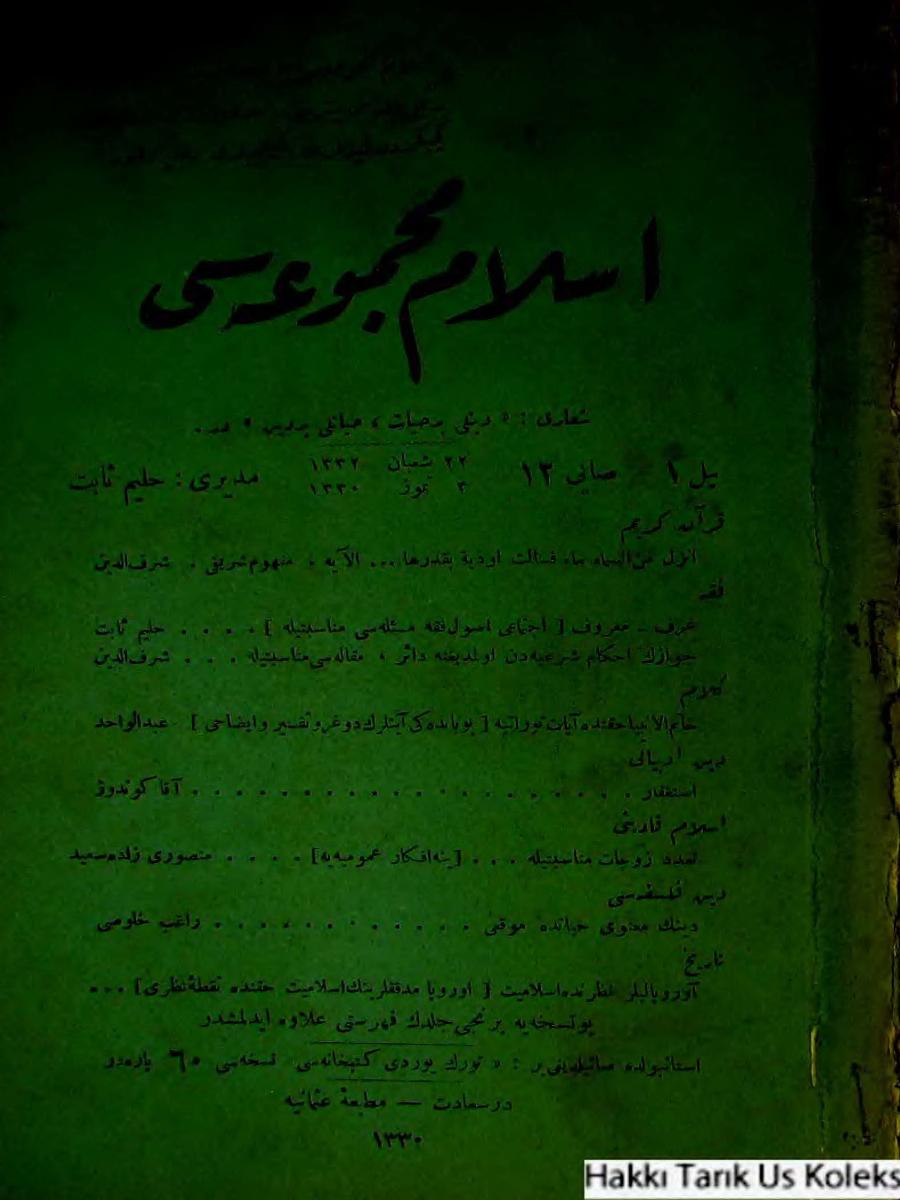 اسلام مجموعه‌سی
شعاری : « دینلی بر حیات ، حیاتلی بر دین » در.
ییل ۱ صایی ۱۲ ۲۲ شعبان ۱۳۳۲ مدیری : حلیم ثابت
۳ تموز ۱۳۳۰
قرآن کریم
انزل من السماء ماء فسالت اودیة بقدرها ... الآیه ، مفهوم شریفی . شرف‌الدین
فقه
عرف ـ معروف [ اجتماعی اصول فقه مسئله‌سی مناسبتیله ] . . . . حلیم ثابت
جوازك احکام شرعیه‌دن اولمدیغنه دائر ، مقاله‌سی مناسبتیله . . . شرف‌الدین
کلام
خاتم الانبیا حقنده آیات توراتیه [ بو بابده‌کی آیتلرك دوغرو تفسیر و ایضاحی ] عبدالواحد
دین ادبیاتی
استغفار . . . . . . . . . . . . . . . . آقا کوندوز
اسلام قادینی
تعدد زوجات مناسبتیله . . . [ینه افکار عمومیه‌یه] . . . . منصوری زاده سعید
دین فلسفه‌سی
دینك معنوی حیاتده موقعی . . . . . . . . . . . راغب خلوصی
تاریخ
آوروپالیلر نظرنده اسلامیت [ اوروپا مدققلرینك اسلامیت حقنده نقطهٔ نظری] ...
بو نسخه‌یه برنجی جلدك فهرستی علاوه ایدلمشدر
استانبولده صاتیلدیغی یر : « تورك یوردی کتبخانه‌سی نسخه‌سی ٦۰ پاره‌در
درسعادت — مطبعهٔ عثمانیه
۱۳۳۰
Hakkı Tarık Us Koleks